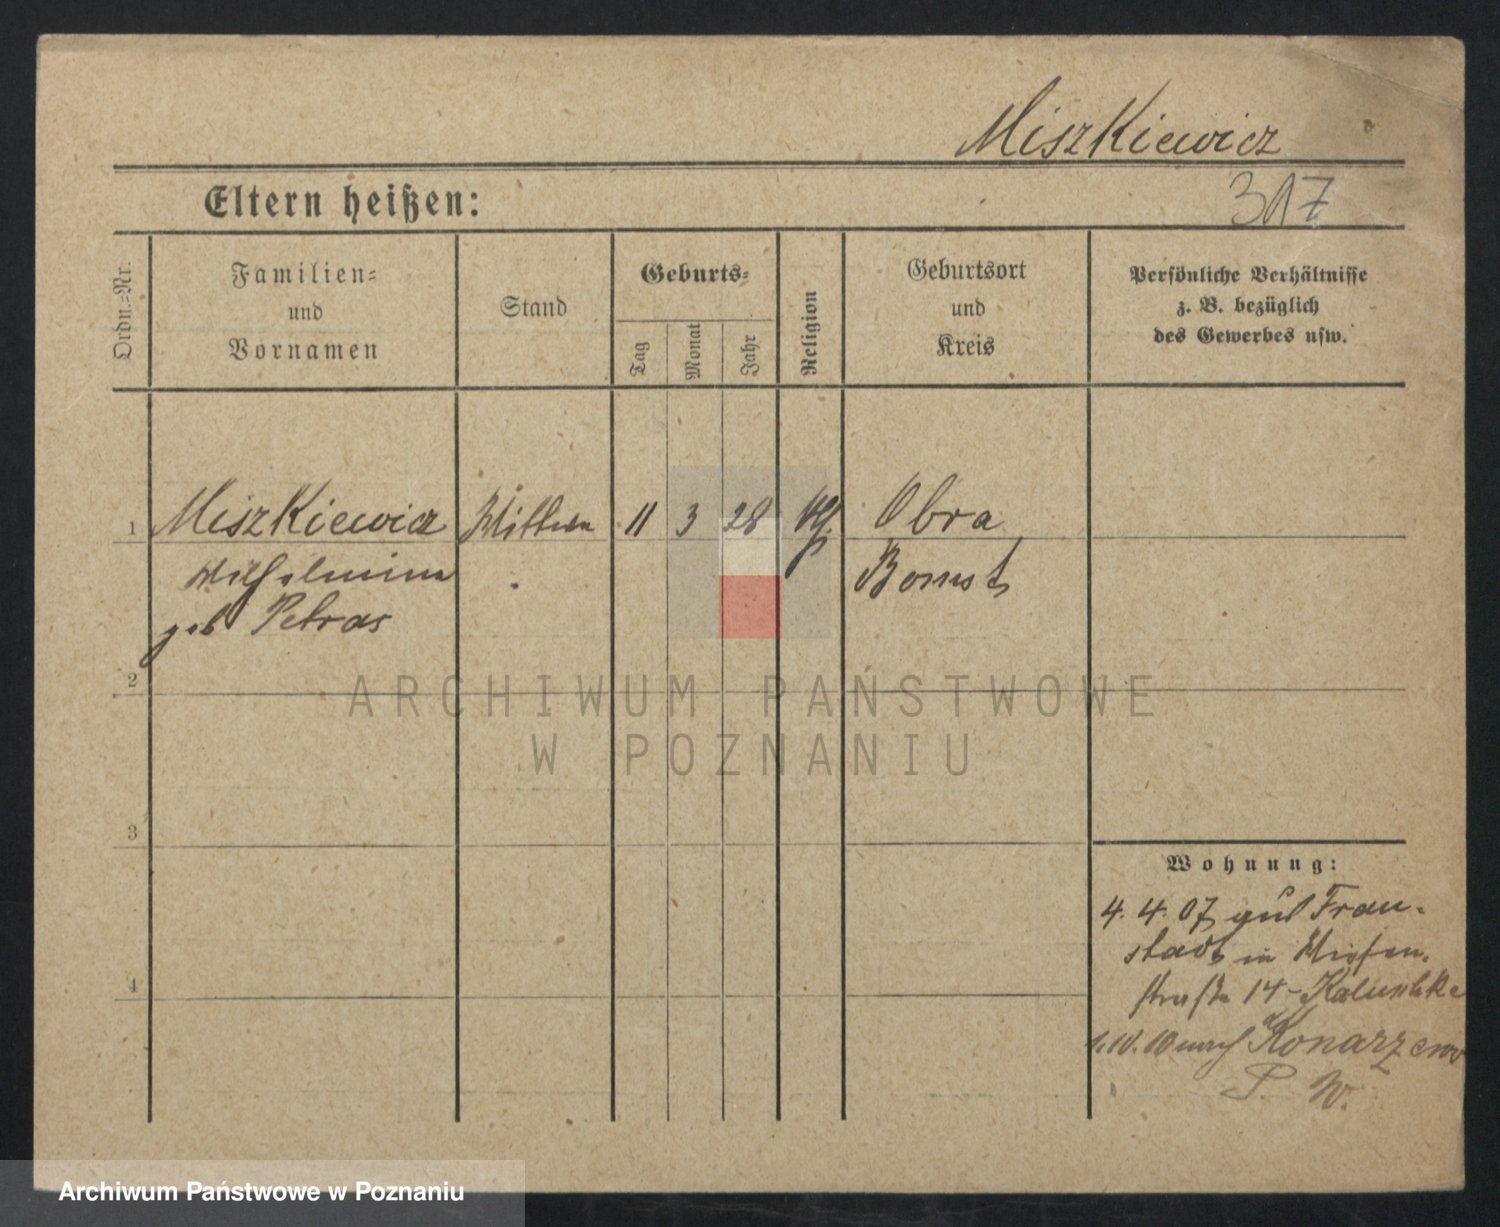 Miszkiewicz
Eltern heißen:
317
Ordn.=Nr.
Familien=
und
Vornamen
Stand
Geburts=
Tag
Monat
Jahr
Religion
Geburtsort
und
Kreis
Persönliche Verhältnisse
z. B. bezüglich
des Gewerbes usw.
1 Miszkiewicz Wittwe 11 3 28 kth. Obra
Wilhelmine Bomst
geb Petras
2
3
4
Wohnung:
4. 4. 07 aus Frau-
stadt in Wiesen-
straße 14 -
1.10.10 nach Konarzewo
P. W.
ARCHIWUM PAŃSTWOWE
W POZNANIU
Archiwum Państwowe w Poznaniu